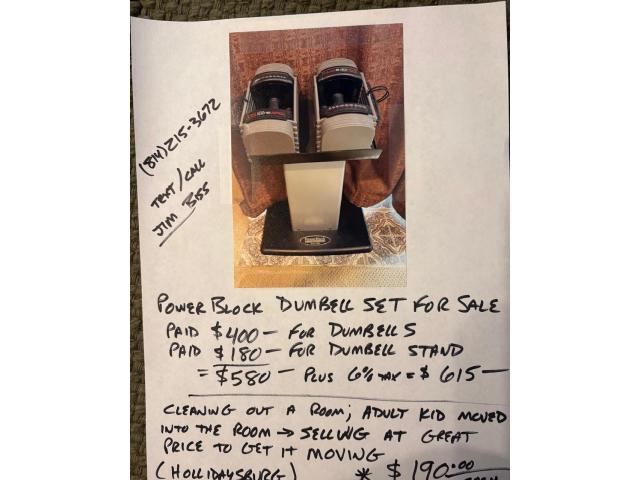 (814) 215-3672
TEXT/CALL
JIM BISS
POWER BLOCK DUMBELL SET FOR SALE
PAID $400— FOR DUMBELLS
PAID $180— FOR DUMBELL STAND
= $580— PLUS 6% TAX = $615—
CLEANING OUT A ROOM; ADULT KID MOVED
INTO THE ROOM → SELLING AT GREAT
PRICE TO GET IT MOVING
(HOLLIDAYSBURG) * $190.00